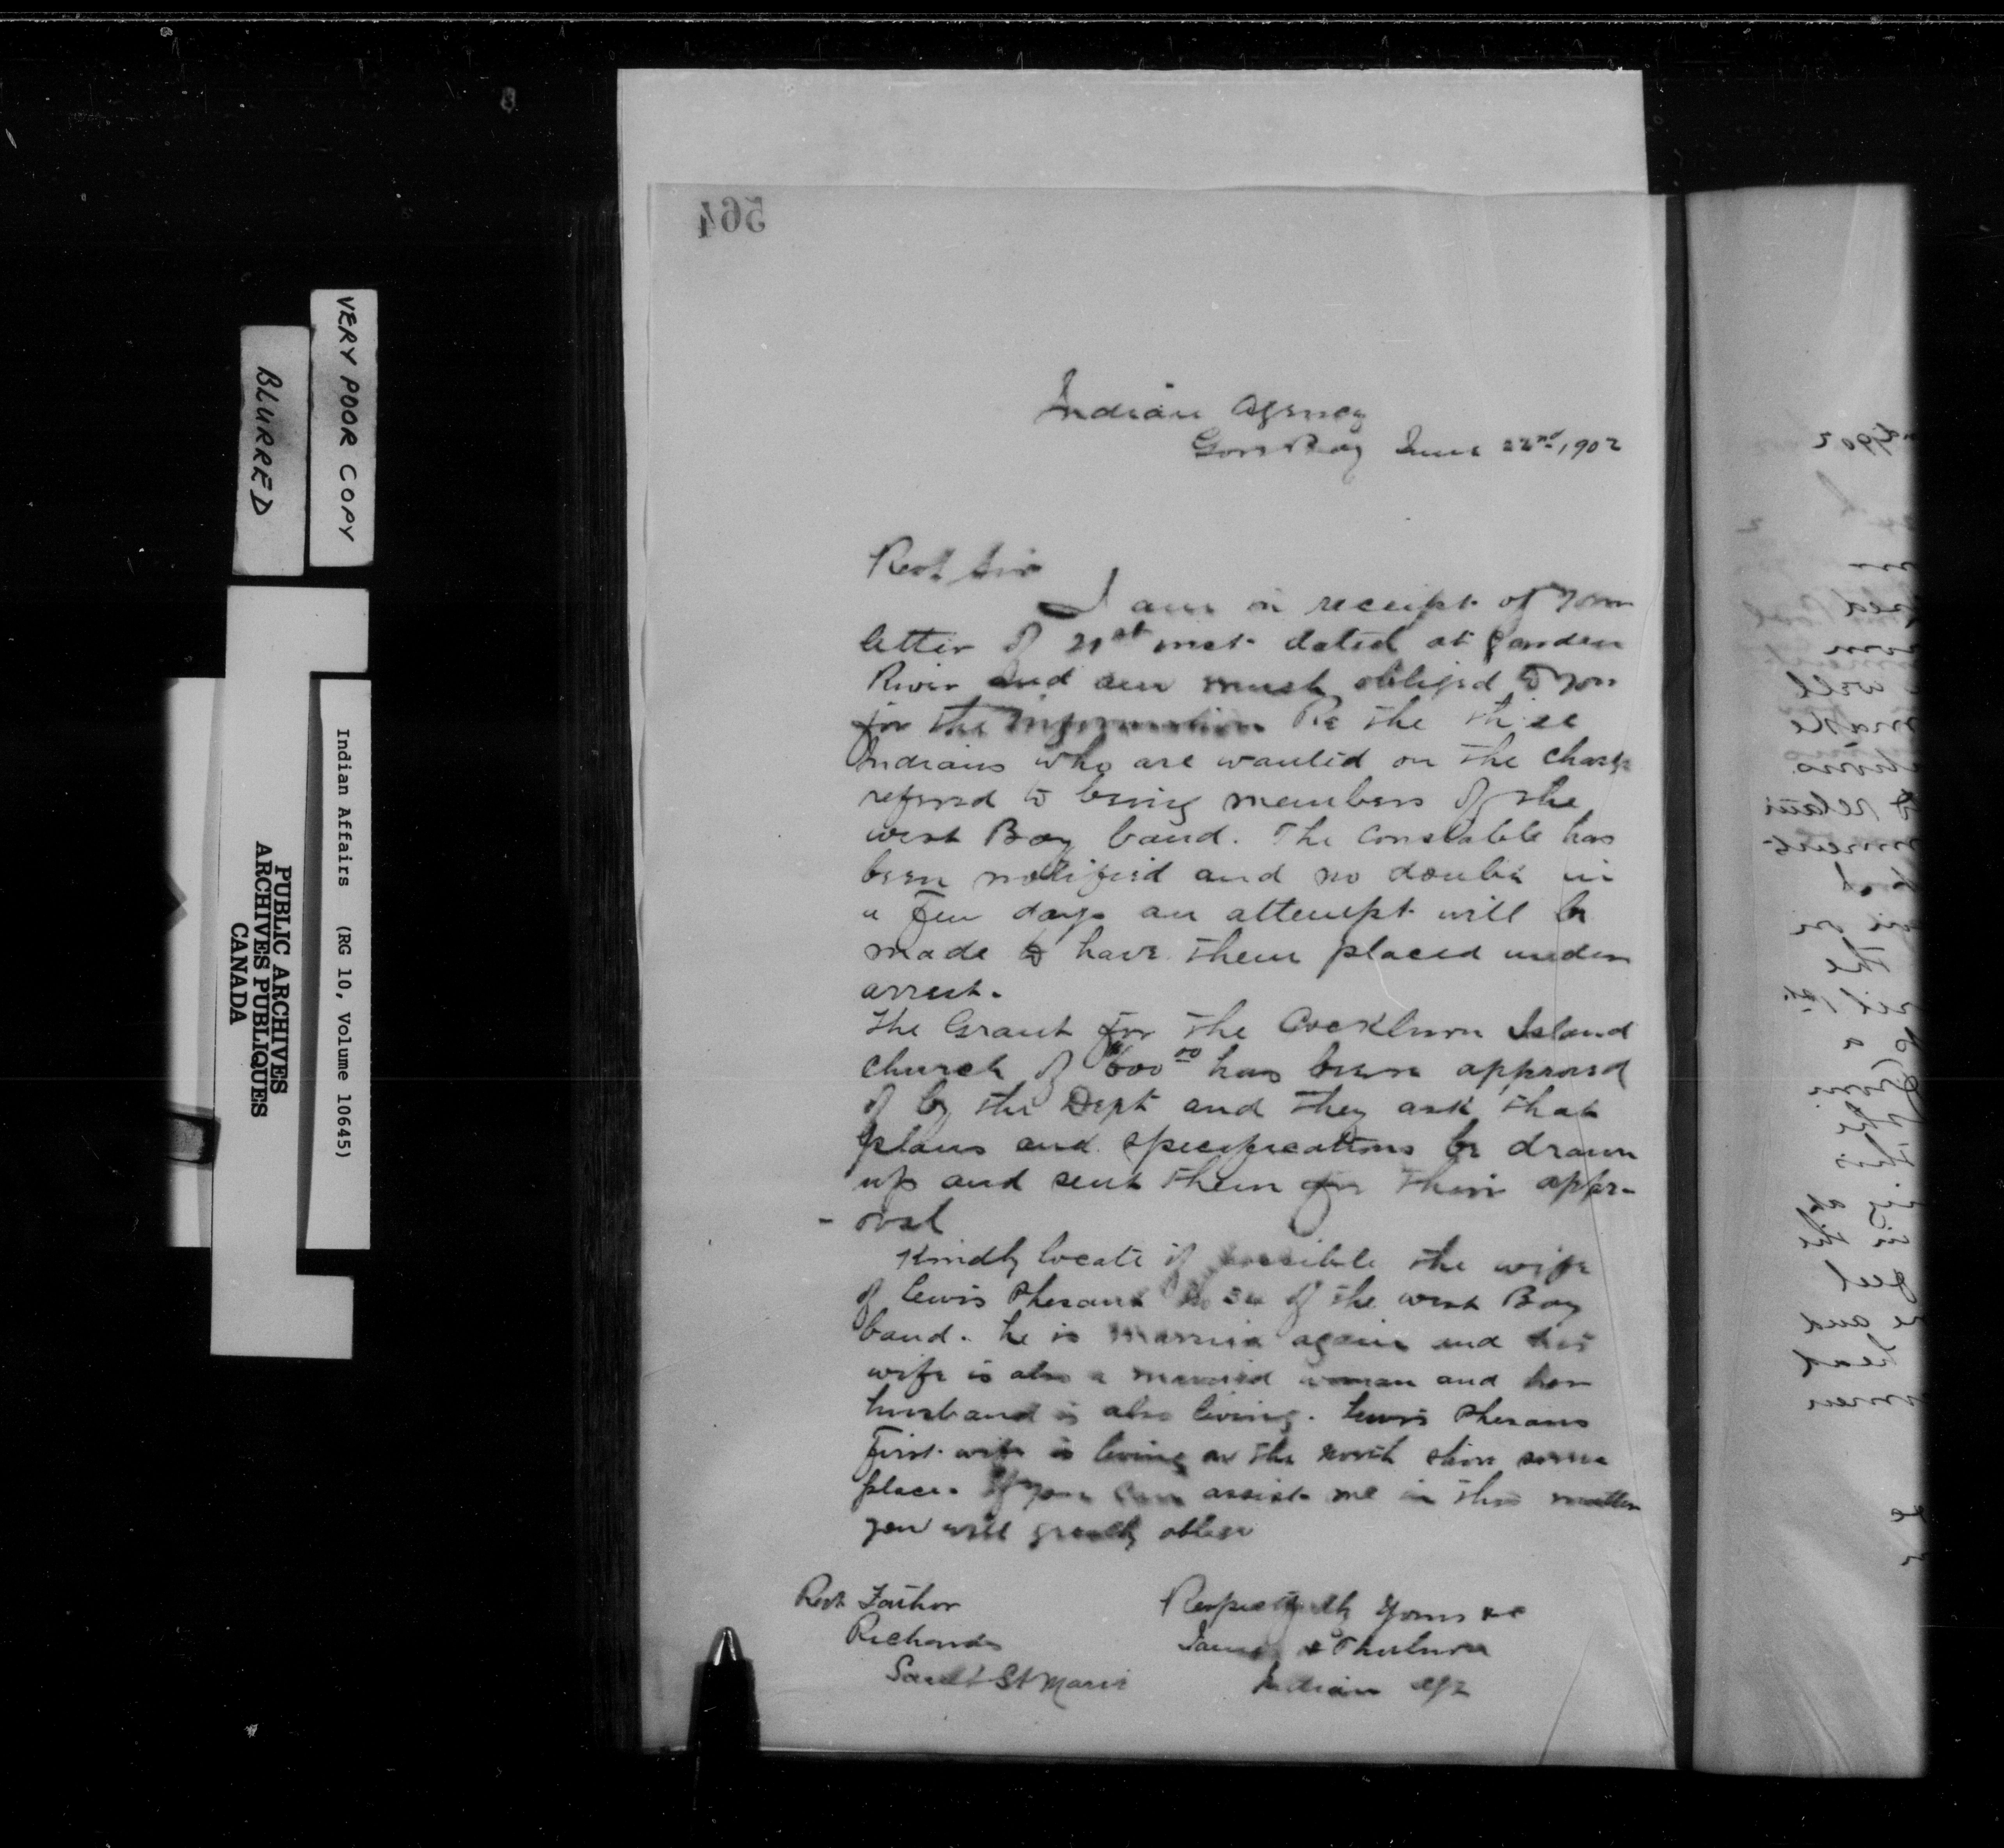 564
Indian Agency
Gore Bay June 22nd, 1902
Revd Sir
I am in receipt of your
letter of 21st inst dated at Garden
River and am much obliged to you
for the information Re the three
Indians who are wanted on the charge
referred to being members of the
west Bay band. The Constable has
been notified and no doubt in
a few days an attempt will be
made to have them placed under
arrest.
The Grant for the Cockburn Island
church of $600 00 has been approved
of by the Dept and they ask that
plans and specifications be drawn
up and sent them for their appr-
- oval
Kindly locate if possible the wife
of Lewis of the west Bay
band. he is married again and his
wife is also a married woman and her
husband is also living. Lewis
first wife is living on the north shore some
place. If you can assist me in this matter
you will greatly oblige
Revd Father
Richards
Sault St Marie
Respectfully Yours
James Thorburn
Indian Agt
VERY POOR COPY
BLURRED
Indian Affairs (RG 10, Volume 10645)
PUBLIC ARCHIVES
ARCHIVES PUBLIQUES
CANADA